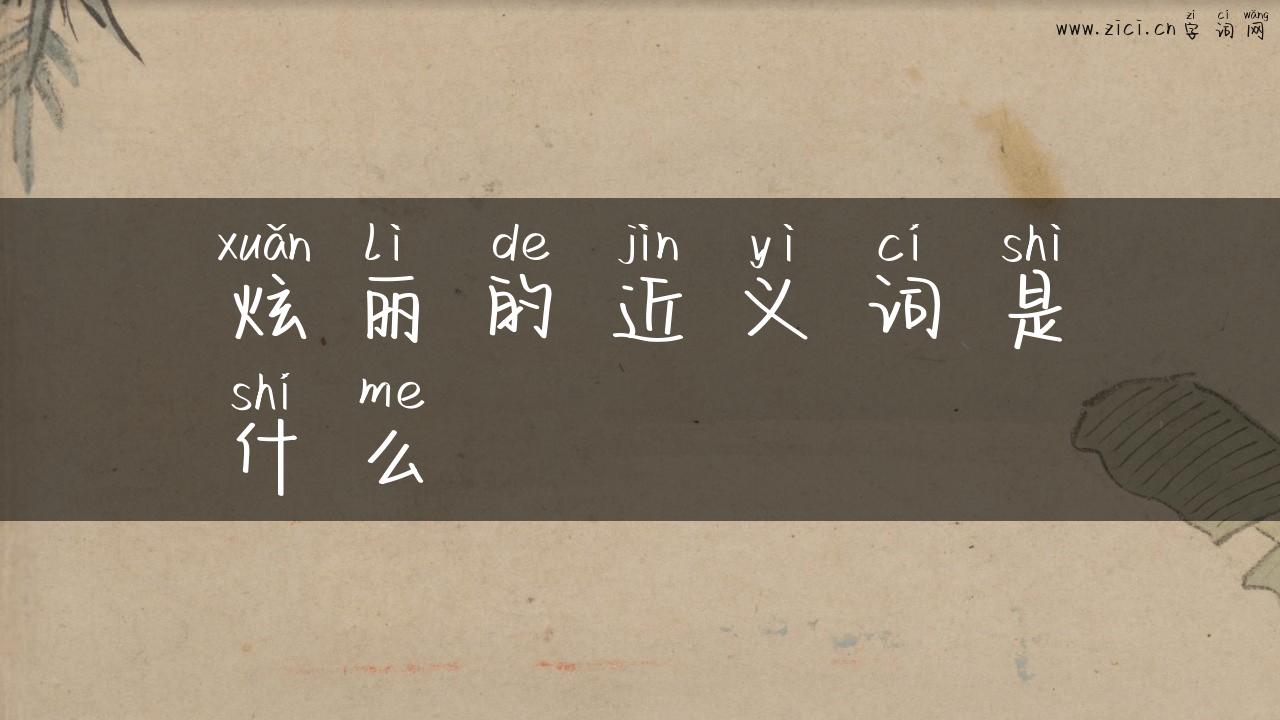 zì cí wǎng
www.zici.cn 字 词 网
xuǎn lì de jìn yì cí shì
炫 丽 的 近 义 词 是
shí me
什 么